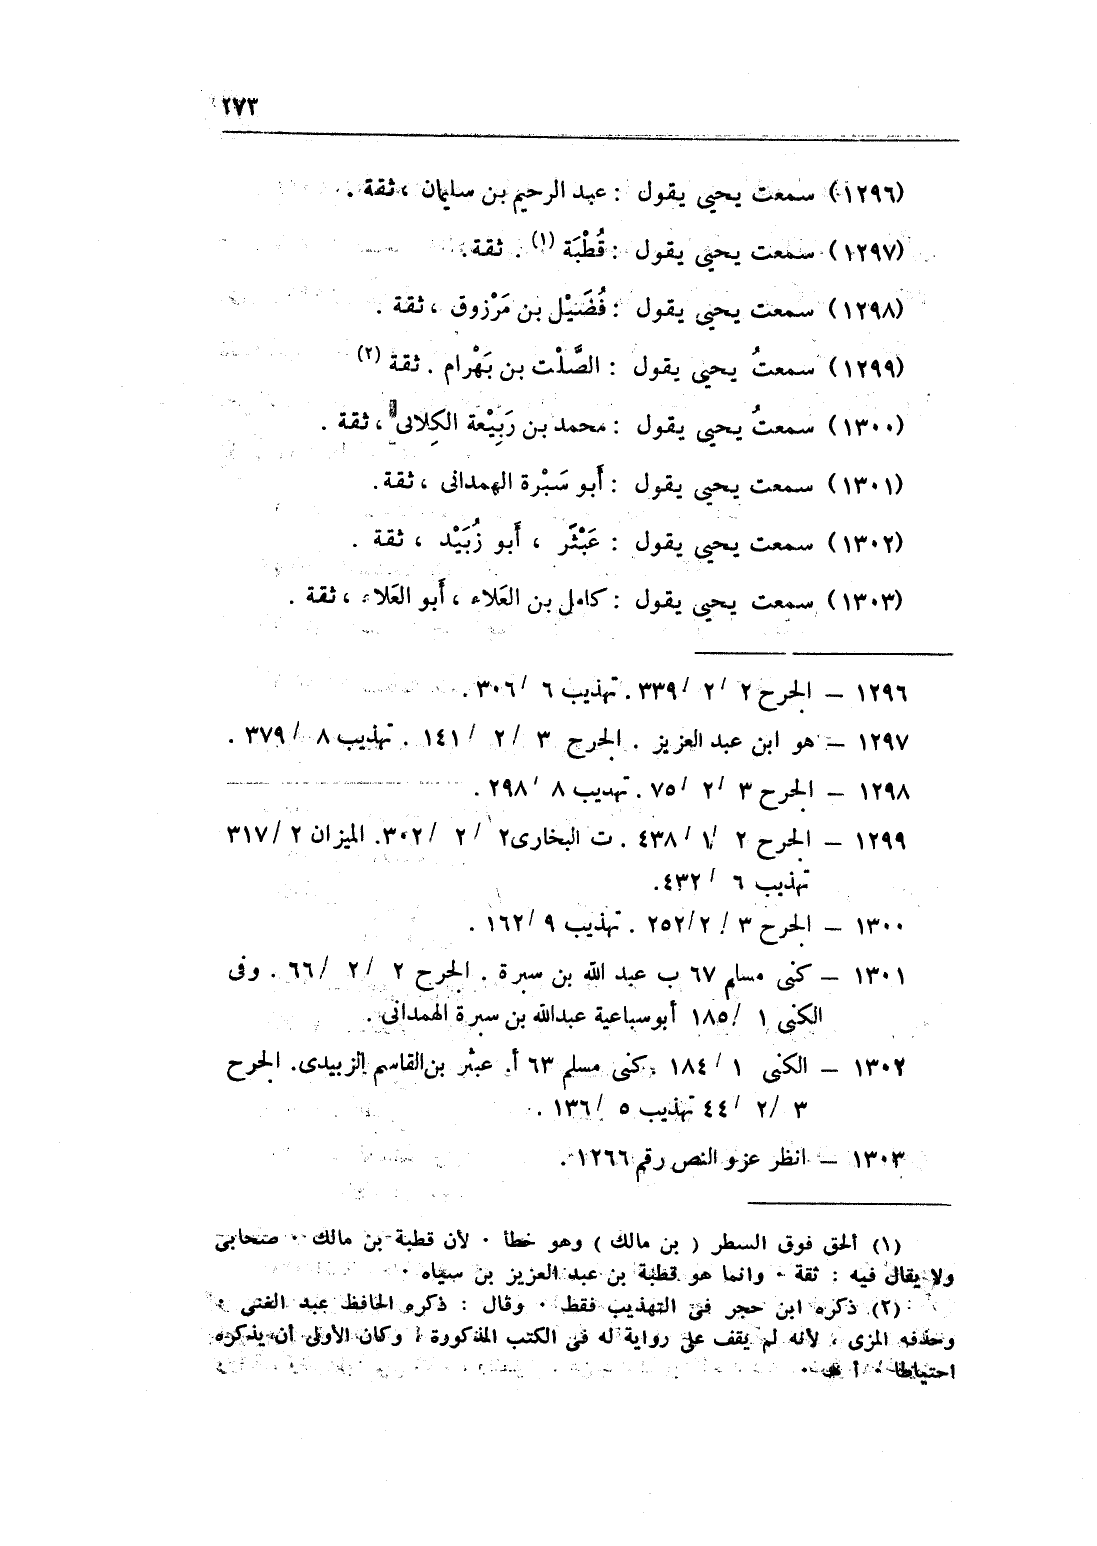 ٢٧٣
(١٢٩٦) سمعت يحيى يقول : عبد الرحيم بن سليمان ، ثقة .
(١٢٩٧) سمعت يحيى يقول : قُطْبَة (١) . ثقة .
(١٢٩٨) سمعت يحيى يقول : فُضَيْل بن مَرْزوق ، ثقة .
(١٢٩٩) سمعتُ يحيى يقول : الصَّلْت بن بَهْرام . ثقة (٢)
(١٣٠٠) سمعتُ يحيى يقول : محمد بن رَبِيْعة الكِلابى ، ثقة .
(١٣٠١) سمعت يحيى يقول : أَبو سَبْرة الهمدانى ، ثقة .
(١٣٠٢) سمعت يحيى يقول : عَبْثَر ، أَبو زُبَيْد ، ثقة .
(١٣٠٣) سمعت يحيى يقول : كامل بن العَلاء ، أَبو العَلاء ، ثقة .
١٢٩٦ – الجرح ٢ / ٢ / ٣٣٩ . تهذيب ٦ / ٣٠٦ .
١٢٩٧ – هو ابن عبد العزيز . الجرح ٣ / ٢ / ١٤١ . تهذيب ٨ / ٣٧٩ .
١٢٩٨ – الجرح ٣ / ٢ / ٧٥ . تهذيب ٨ / ٢٩٨ .
١٢٩٩ – الجرح ٢ / ١ / ٤٣٨ . ت البخارى ٢ / ٢ / ٣٠٢. الميزان ٢ / ٣١٧
تهذيب ٦ / ٤٣٢.
١٣٠٠ – الجرح ٣ / ٢ / ٢٥٢ . تهذيب ٩ / ١٦٢ .
١٣٠١ – كنى مسلم ٦٧ ب عبد الله بن سبرة . الجرح ٢ / ٢ / ٦٦ . وفى
الكنى ١ / ١٨٥ أبو سباعية عبدالله بن سبرة الهمدانى .
١٣٠٢ – الكنى ١ / ١٨٤ . كنى مسلم ٦٣ أ. عبثر بن القاسم الزبيدى. الجرح
٣ / ٢ / ٤٤ تهذيب ٥ / ١٣٦ .
١٣٠٣ – انظر عزو النص رقم ١٢٦٦ .
(١) ألحق فوق السطر ( بن مالك ) وهو خطأ . لأن قطبة بن مالك . صحابى
ولا يقال فيه : ثقة . وانما هو قطبة بن عبد العزيز بن سياه .
(٢) ذكره ابن حجر فى التهذيب فقط . وقال : ذكره الحافظ عبد الغنى .
وحذفه المزى ، لأنه لم يقف على رواية له فى الكتب المذكورة ، وكان الأولى أن يذكره
احتياطا . أ هـ .